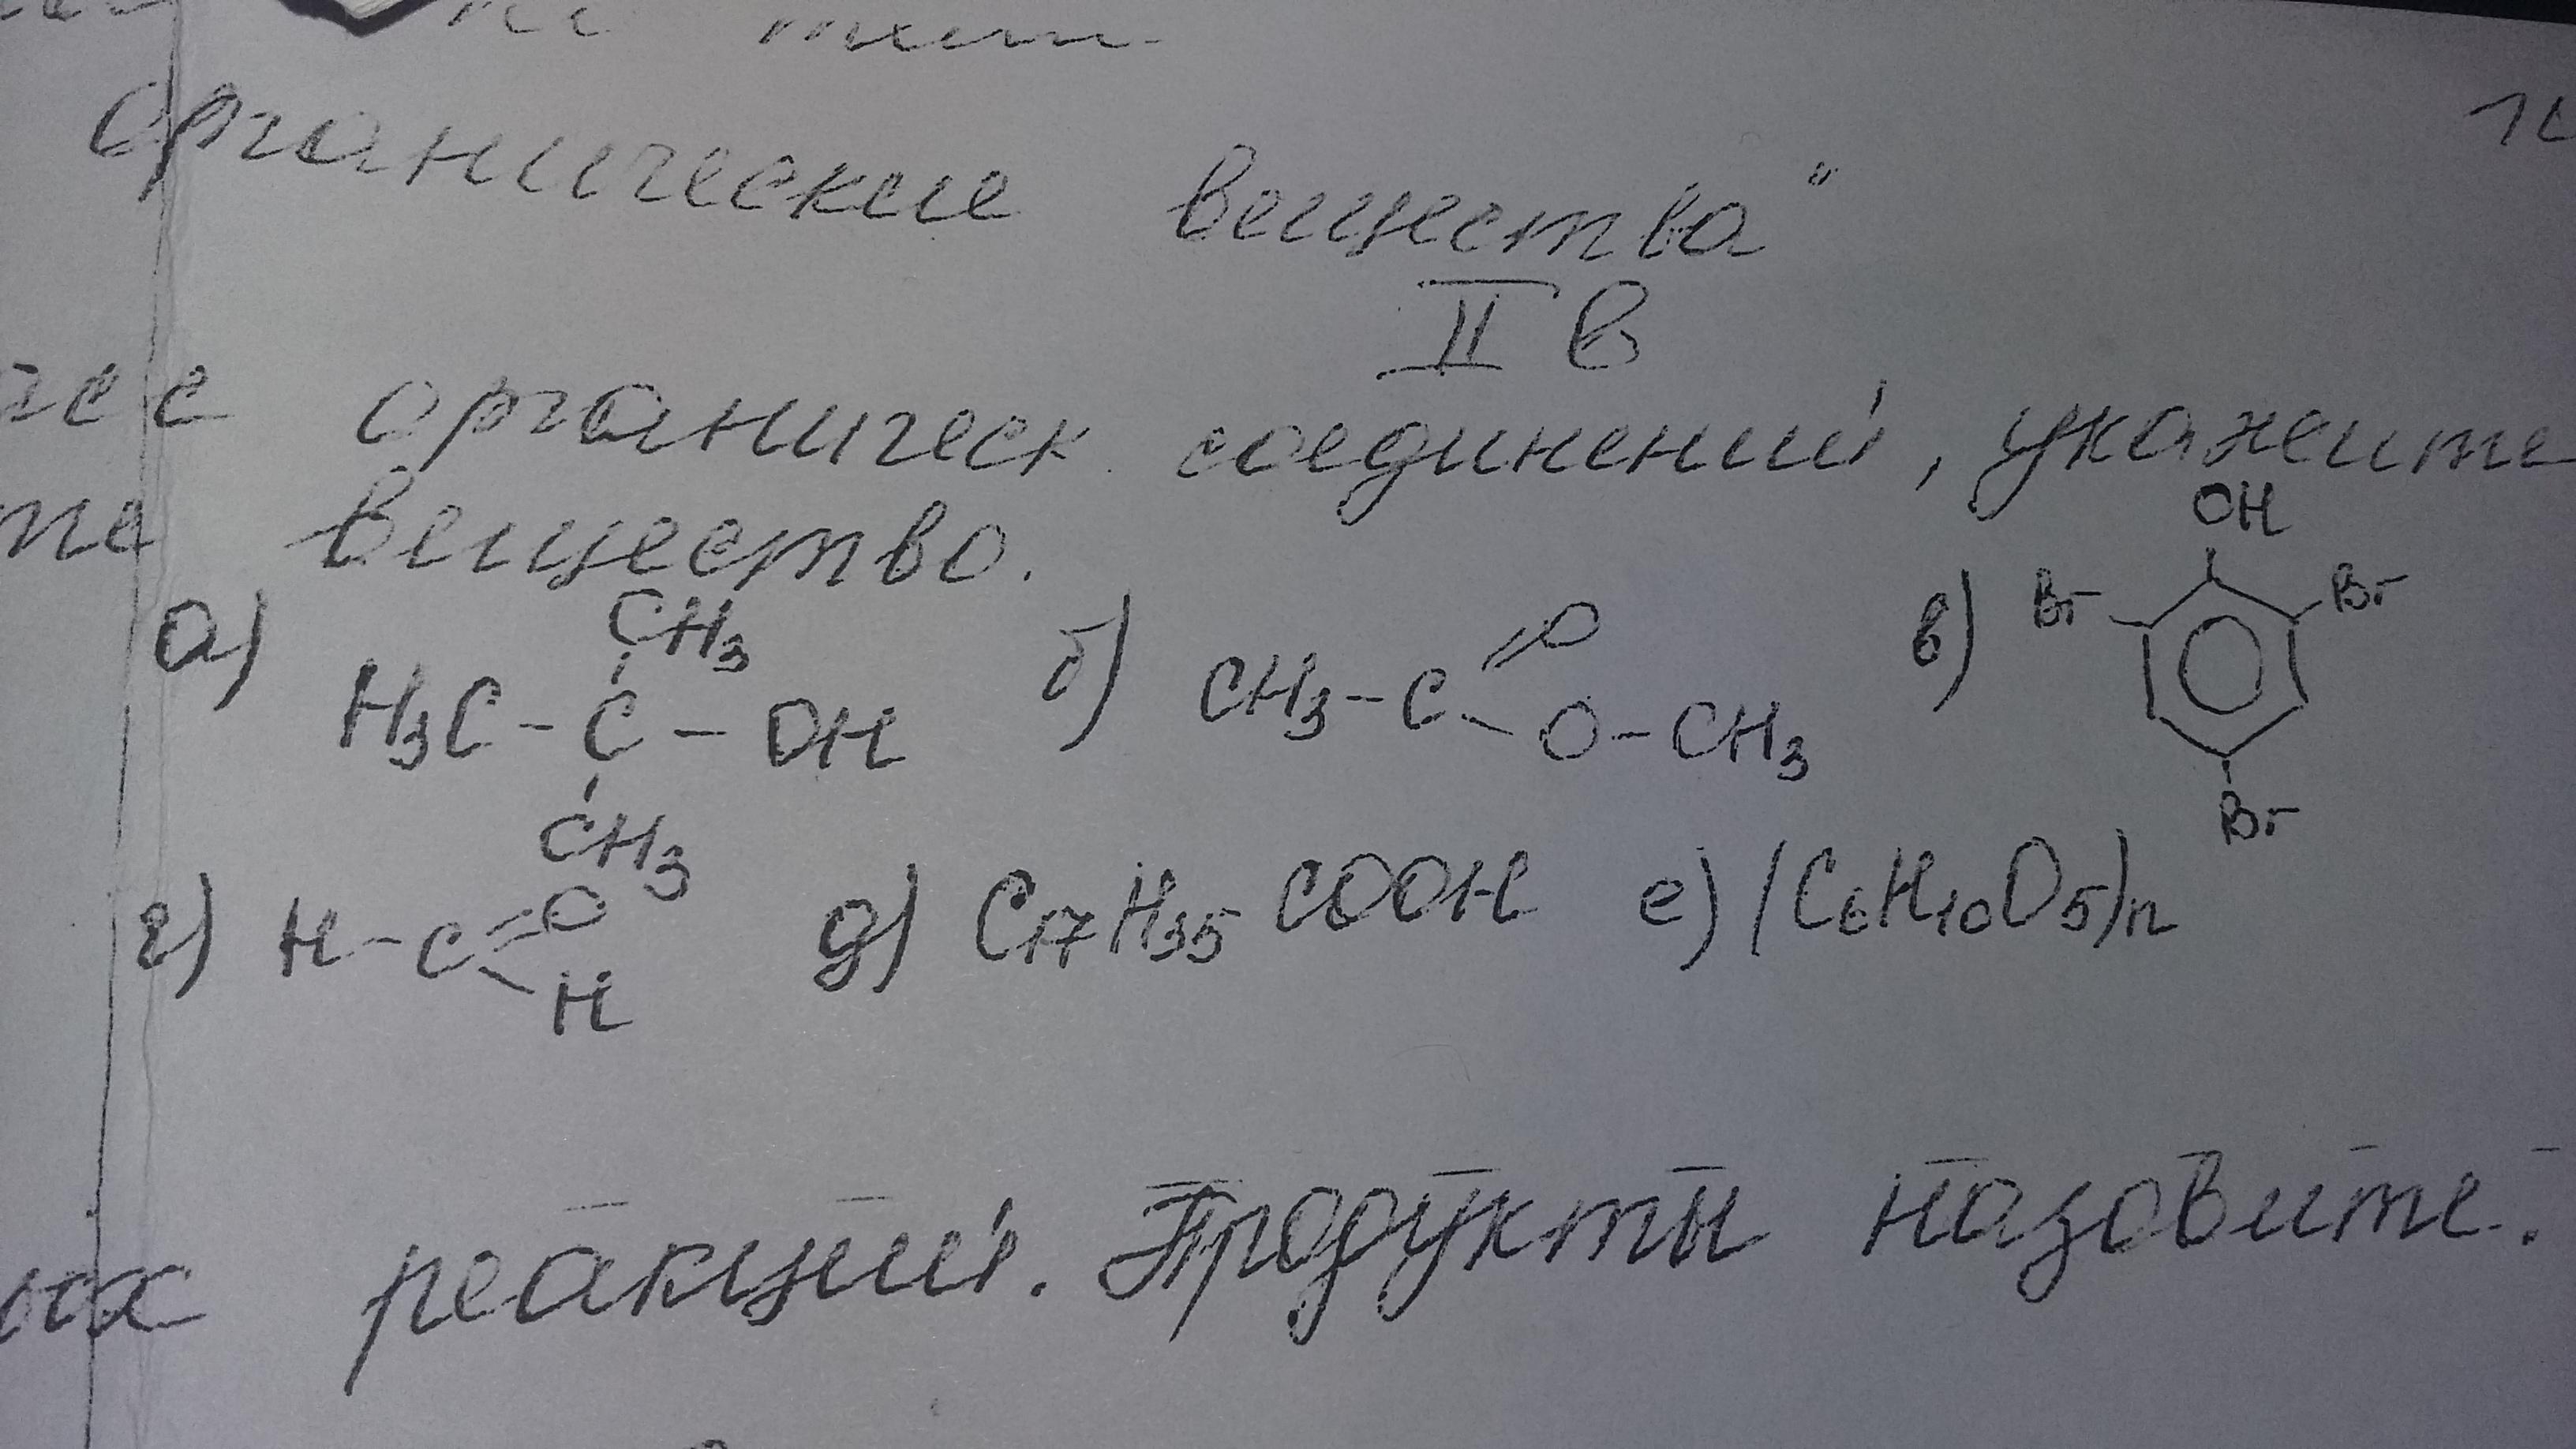 органические вещества"
II в
органическ. соединений, укажите
вещество.
а) H3C - C - OH
CH3
CH3
б) CH3 - C
O
O - CH3
в) OH
Br
Br
Br
г) H - C
O
H
д) C17H35COOH
е) (C6H10O5)n
реакций. Продукты назовите.